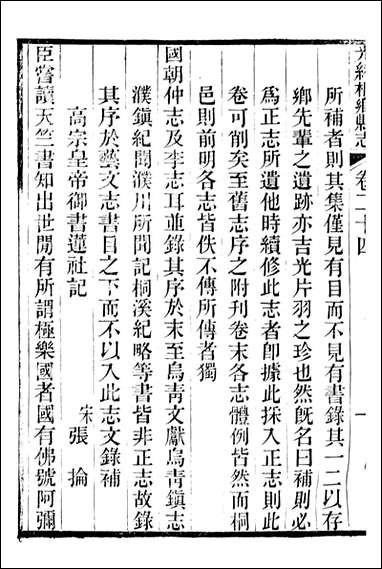 光緒桐鄉縣志 卷二十四 一
所補者則其集僅見有目而不見有書錄其一二以存
鄉先輩之遺跡亦吉光片羽之珍也然旣名曰補則必
爲正志所遺他時續修此志者卽據此採入正志則此
卷可削矣至舊志序之附刊卷末各志體例皆然而桐
邑則前明各志皆佚不傳所傳者獨
國朝仲志及李志耳並錄其序於末至烏青文獻烏青鎭志
濮鎭紀聞濮川所聞記桐溪紀略等書皆非正志故錄
其序於藝文志書目之下而不以入此志文錄補
高宗皇帝御書蓮社記
宋 張掄
臣嘗讀天竺書知出世閒有所謂極樂國者國有佛號阿彌